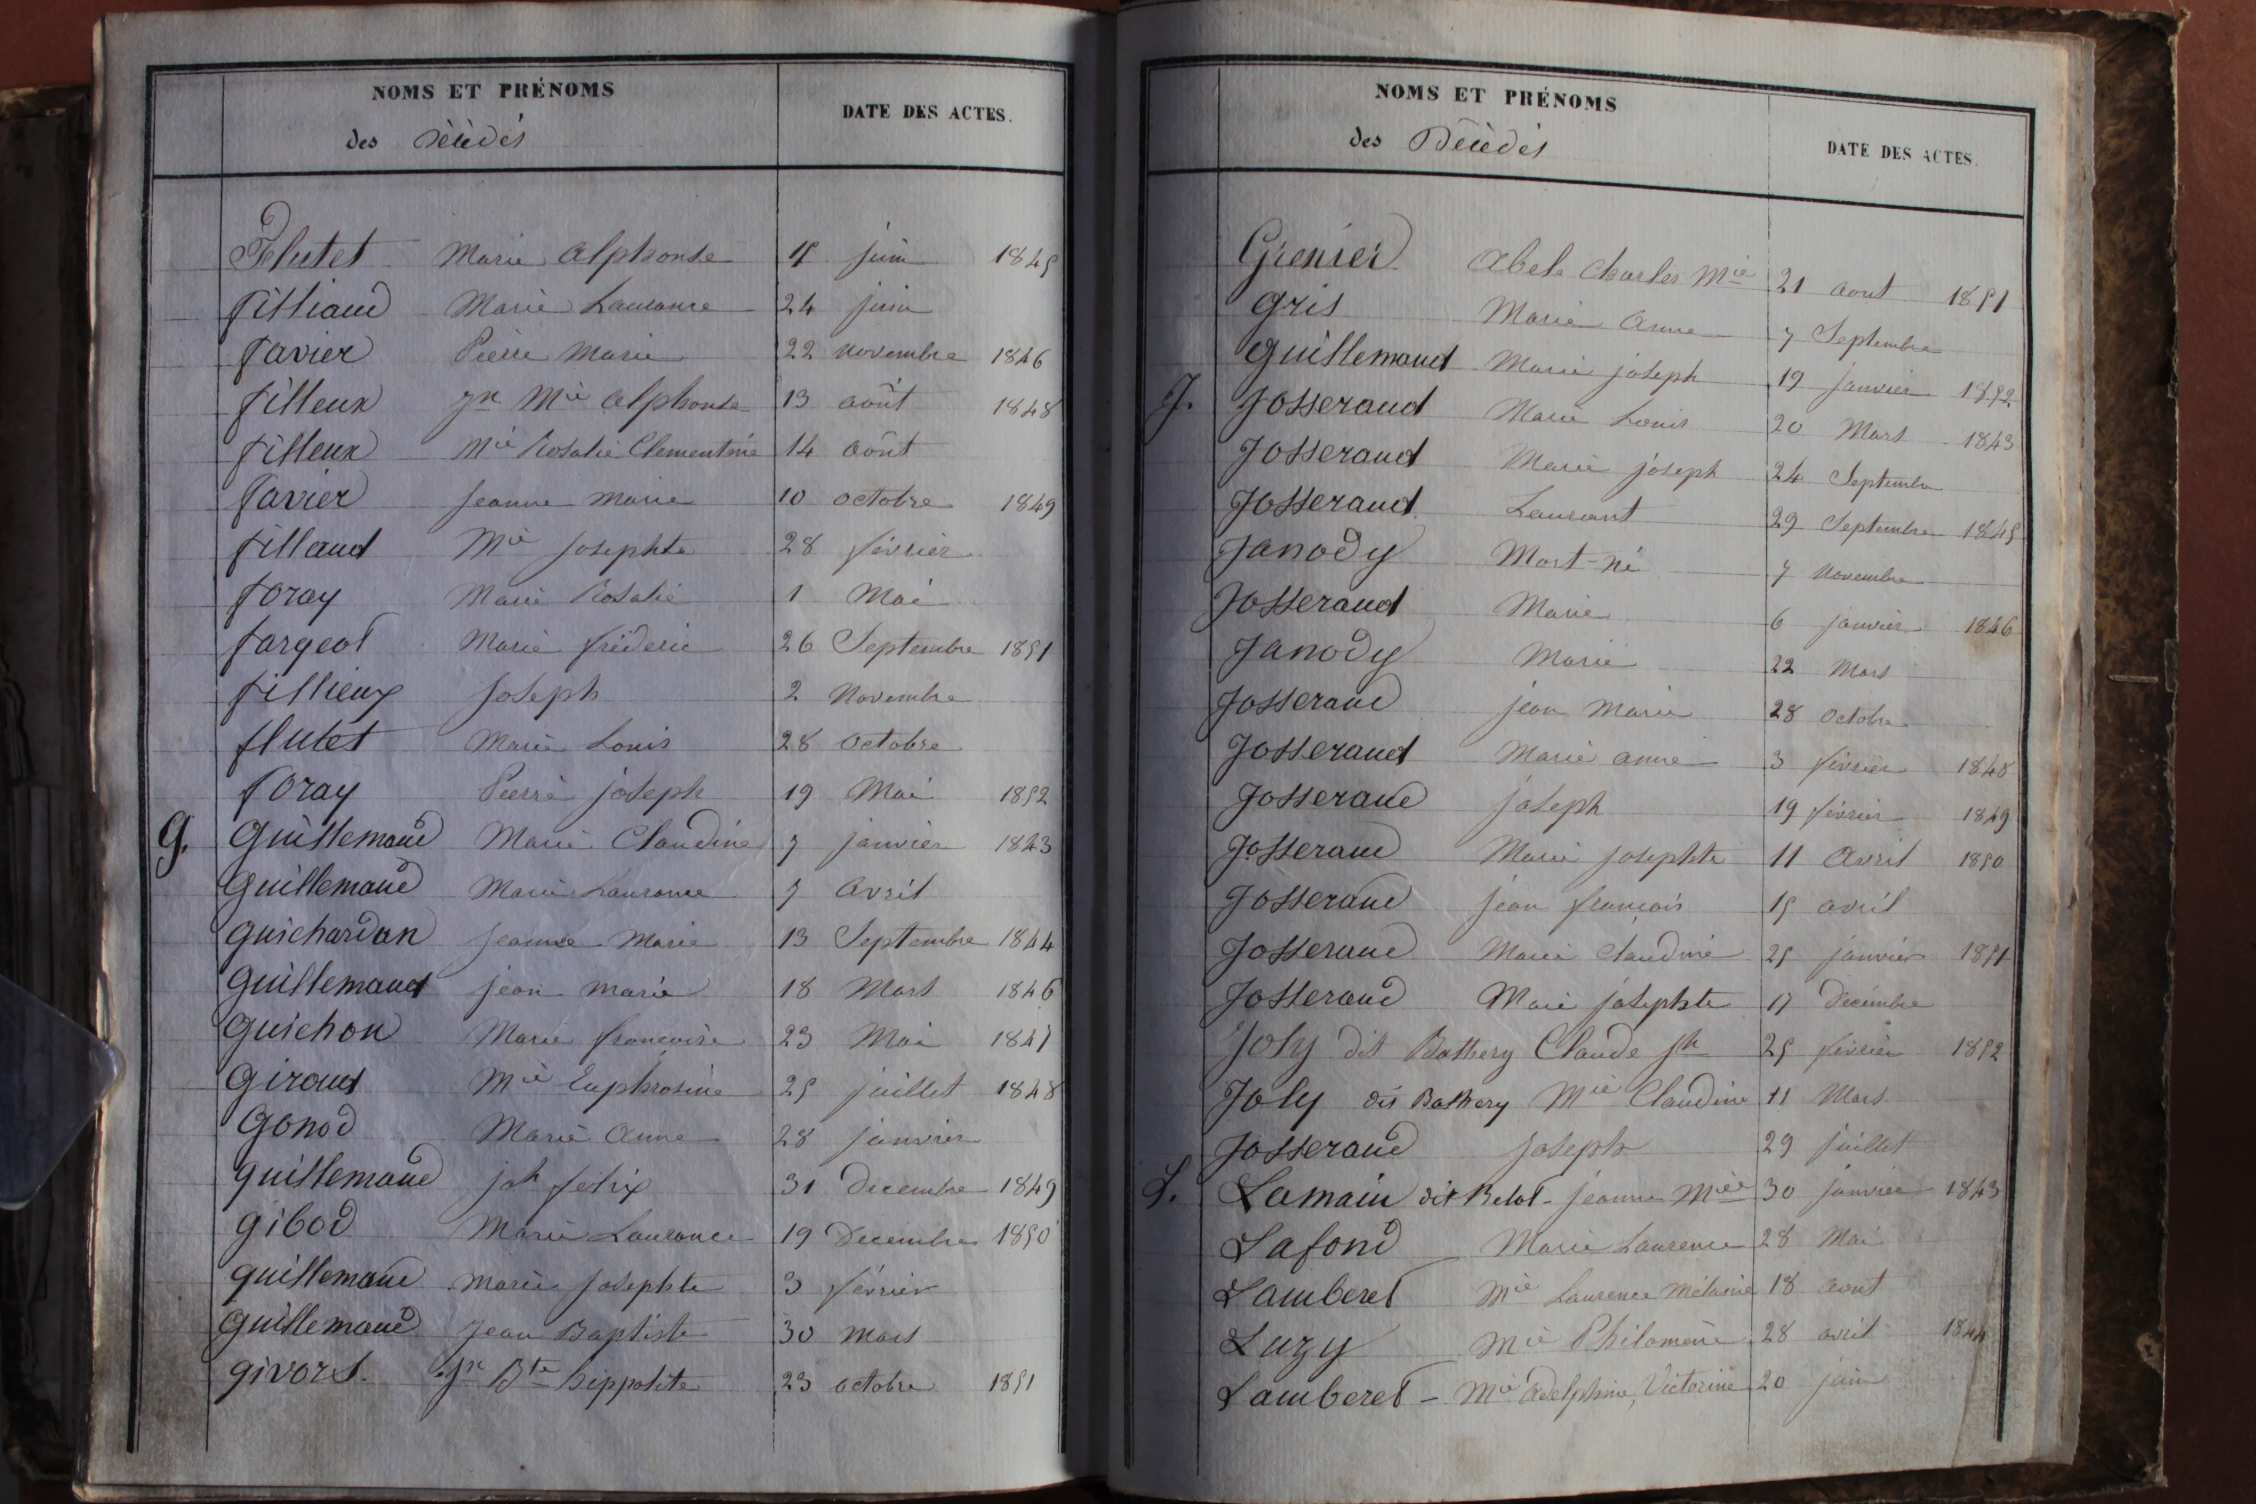 NOMS ET PRÉNOMS
DATE DES ACTES.
des Décédés
Flutet Marie Alphonse 15 juin 1845
Filliaud Marie Laurance 24 juin
Favier Pierre Marie 22 Novembre 1846
Filleux Jn Mie Alphonse 13 août 1848
Filleux Mie Rosalie Clementine 14 août
Favier Jeanne Marie 10 octobre 1849
Fillaud Mie Josephte 28 février
Foray Marie Rosalie 1 Mai
Fargeot Marie fréderic 26 Septembre 1851
Fillieux Joseph 2 Novembre
flutet Marie Louis 28 Octobre
Foray Pierre joseph 19 Mai 1852
G. Guillemaud Marie Claudine 7 janvier 1843
Guillemaud Marie Laurance 7 avril
Guichardan Jeanne Marie 13 Septembre 1844
Guillemaud jean marie 18 Mars 1846
Guichon Marie françoise 23 Mai 1847
Giraud Mie Euphrosine 25 juillet 1848
Gonod Marie Anne 28 janvier
Guillemaud jph felix 31 Decembre 1849
Gibod Marie Laurance 19 Decembre 1850
Guillemaud Marie Josephte 3 février
Guillemaud Jean Baptiste 30 mars
Givors. Jn Bte hippolite 23 octobre 1851
NOMS ET PRÉNOMS
DATE DES ACTES.
des Décédés
Grenier Abel Charles Mie 21 aout 1851
Gris Marie Anne 7 Septembre
Guillemaud Marie joseph 19 Janvier 1852
J. Josseraud Marie Louis 20 Mars 1843
Josseraud Marie joseph 24 Septembre
Josseraud Laurant 29 Septembre 1845
Janody Mort-né 7 Novembre
Josseraud Marie 6 janvier 1846
Janody Marie 22 Mars
Josseraud jean Marie 28 Octobre
Josseraud Marie anne 3 février 1848
Josseraud joseph 19 février 1849
Josseraud Marie josephte 11 Avril 1850
Josseraud jean françois 15 avril
Josseraud Marie Claudine 25 janvier 1851
Josseraud Marie josephte 17 Decembre
Joly dit Bathery Claude jh 25 février 1852
Joly dit Bathery Mie Claudine 11 Mars
Josseraud Joseph 29 juillet
L. Lamain dit Belot - jeanne Mie 30 janvier 1843
Lafond Marie Laurence 28 Mai
Lamberet Mie Laurence Mélanie 18 aout
Luzy Mie Philomène 28 avril 1844
Lamberet - Mie Adelphine, Victorine 20 juin